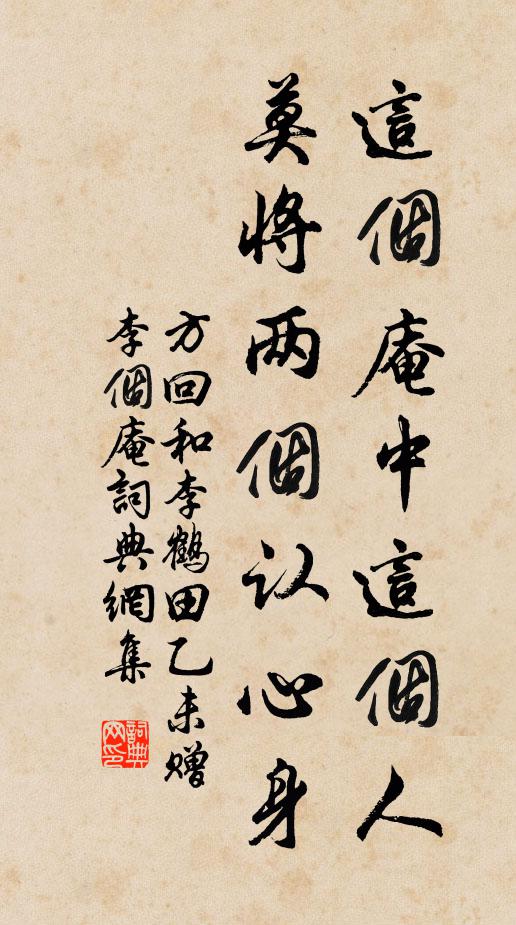 這個庵中這個人
莫將两個认心身
方回和李鶴田乙未赠
李個庵詞典網集
詞典网印